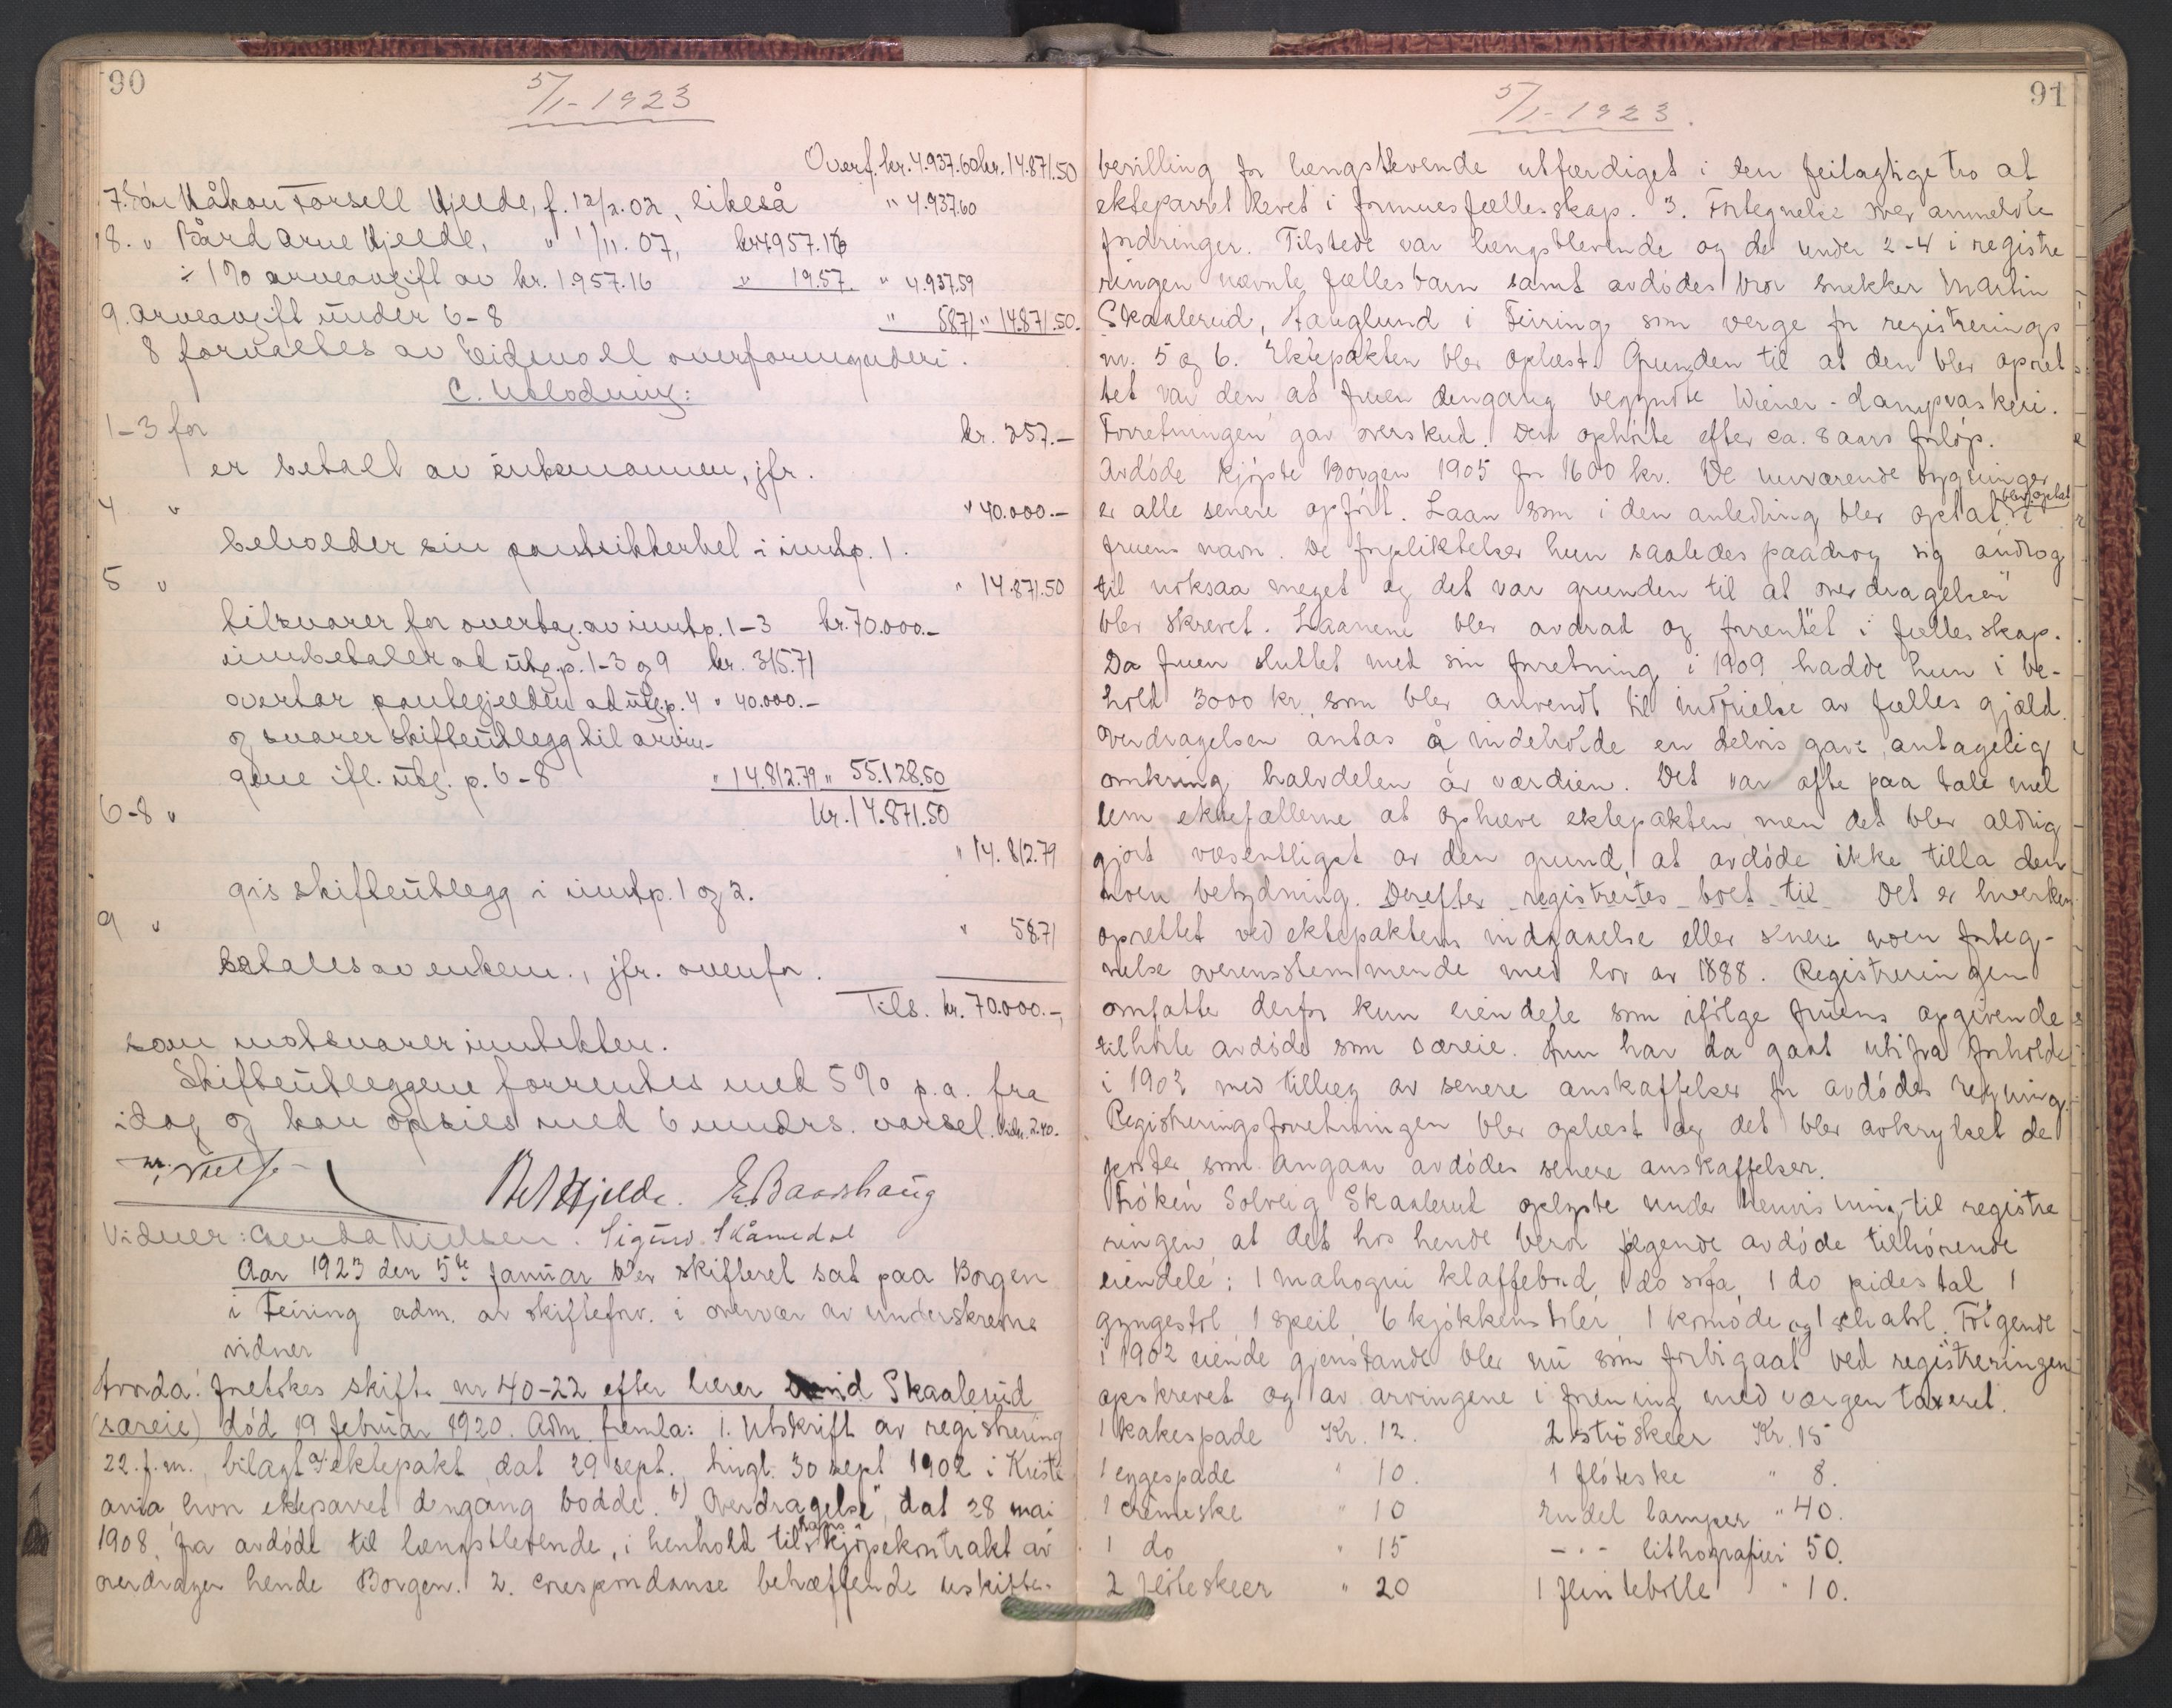 90
5/1-1923
Overf. kr. 4.937.60 kr. 14.871.50
7. Håkon Forsell Hjelde, f. 12/2.02, likeså " 4.937.60
8. " Bård Arne Hjelde, " 1/11.07, kr. 4957.16
÷ 1% arveavgift av kr. 1.957.16 " 19.57 " 4.937.59
9. Arveavgift under 6-8 " 58.71 " 14.871.50.
8 forvaltes av Eidsvoll overformynderi.
C. Utlodning:
1-3 for kr. 257.-
er betalt av enkemannen, jfr.
4 " " 40.000.-
beholder sin pantsikkerhet i inntp. 1.
5 " " 14.871.50
tilsvarer for overtag. av inntp. 1-3 kr. 70.000.-
innbetaler at utg.p. 1-3 og 9 kr. 315.71
overtar pantegjelden at utg.p. 4 " 40.000.-
og svarer skifteutlegg til arvin-
gene ifl. utg. p. 6-8 " 14.812.79 " 55.128.50
kr. 14.871.50
6-8 "
" 14.812.79
gis skifteutlegg i inntp. 1 og 2.
9 " " 58.71
betales av enken., jfr. ovenfor.
Tils. kr. 70.000.-,
som motsvarer inntekten.
Skifteutleggene forrentes med 5% p.a. fra
idag og kan opsies med 6 mndrs. varsel. 2.40.
Hjelde. E. Baardshaug
Vidner: Gerda Nielsen. Sigurd Skåmedal
Aar 1923 den 5te januar blev skifteret sat paa Borgen
i Feiring adm. av skifteforv. i overvær av underskrevne
vidner
Hvorda: foretokes skifte nr 40-22 efter lærer Skaalerud
(særeie) død 19 februar 1920. Adm. fremla: 1. Utskrift av registrering
22. f.m., bilagt a) ektepakt dat 29 sept., tingl. 30 sept 1902 i Kristi
ania, hvor ekteparret dengang bodde. b) "Overdragelse", dat 28 mai
1908, fra avdøde til længstlevende, i henhold til hans kjøpekontrakt av
overdrager hende Borgen. 2. Correspondanse betræffende uskifte-
91
5/1-1923.
bevilling for længstlevende utfærdiget i den feilagtige tro at
ekteparret levet i formuesfællesskap. 3. Fortegnelse over anmeldte
fordringer. Tilstede var længstlevende og de under 2-4 i registre
ringen nævnte fællesbarn samt avdødes bror snekker Martin
Skaalerud, Hauglund i Feiring som verge for registrerings
nr. 5 og 6. Ektepakten blev oplæst. Grunden til at den blev opret
tet var den at fruen dengang begyndte Wiener-dampvaskeri.
Forretningen gav overskud. Den ophørte efter ca. 8 aars forløp.
Avdøde kjøpte Borgen 1905 for 1600 kr. De nuværende bygninger
er alle senere opført. Laan som i den anledning blev optat blev optat i
fruens navn. De forpliktelser hun saaledes paadrog sig androg
til noksaa meget og det var grunden til at "overdragelsen"
blev skrevet. Laanene blev avdrad og forrentet i fællesskap.
Da fruen sluttet med sin forretning i 1909 hadde hun i be-
hold 3000 kr., som blev anvendt til indfrielse av fælles gjæld.
Overdragelsen antas å indeholde en delvis gave, antagelig
omkring halvdelen av værdien. Det var ofte paa tale mel
lem ektefællerne at ophæve ektepakten men det blev aldrig
gjort væsentligst av den grund, at avdøde ikke tilla den
noen betydning. Derefter registreites boet til Det er hverken
oprettet ved ektepaktens indgaaelse eller senere noen forteg-
nelse overensstemmende med lov av 1888. Registreringen
omfatte derfor kun eiendele som ifølge fruens opgivende
tilhørte avdøde som særeie. Hun har da gaat ut ifra forholde
i 1902 med tillæg av senere anskaffelser for avdødes regning.
Registreringsforretningen blev oplæst og det blev avkrysset de
poster som angaar avdødes senere anskaffelser.
Frøken Solveig Skaalerud oplyste under henvisning til registre
ringen at det hos hende beror følgende avdøde tilhørende
eiendele: 1 mahogni klaffebord, 1 do sofa, 1 do pidestal, 1
gyngestol, 1 speil, 6 kjøkkenstoler, 1 komode og 1 schatol. Følgende
i 1902 eiende gjenstande blev nu som forbigaat ved registreringen
opskrevet og av arvingene i forening med værgen taxeret.
1 kakespade Kr. 12. 2 strøskeer Kr. 15
1 eggespade " 10. 1 fløteske " 8.
1 cremeske " 10 Endel lamper " 40.
1 do " 15 -"- lithografier 50.
2 fløteskeer " 20 1 flintebolle " 10.